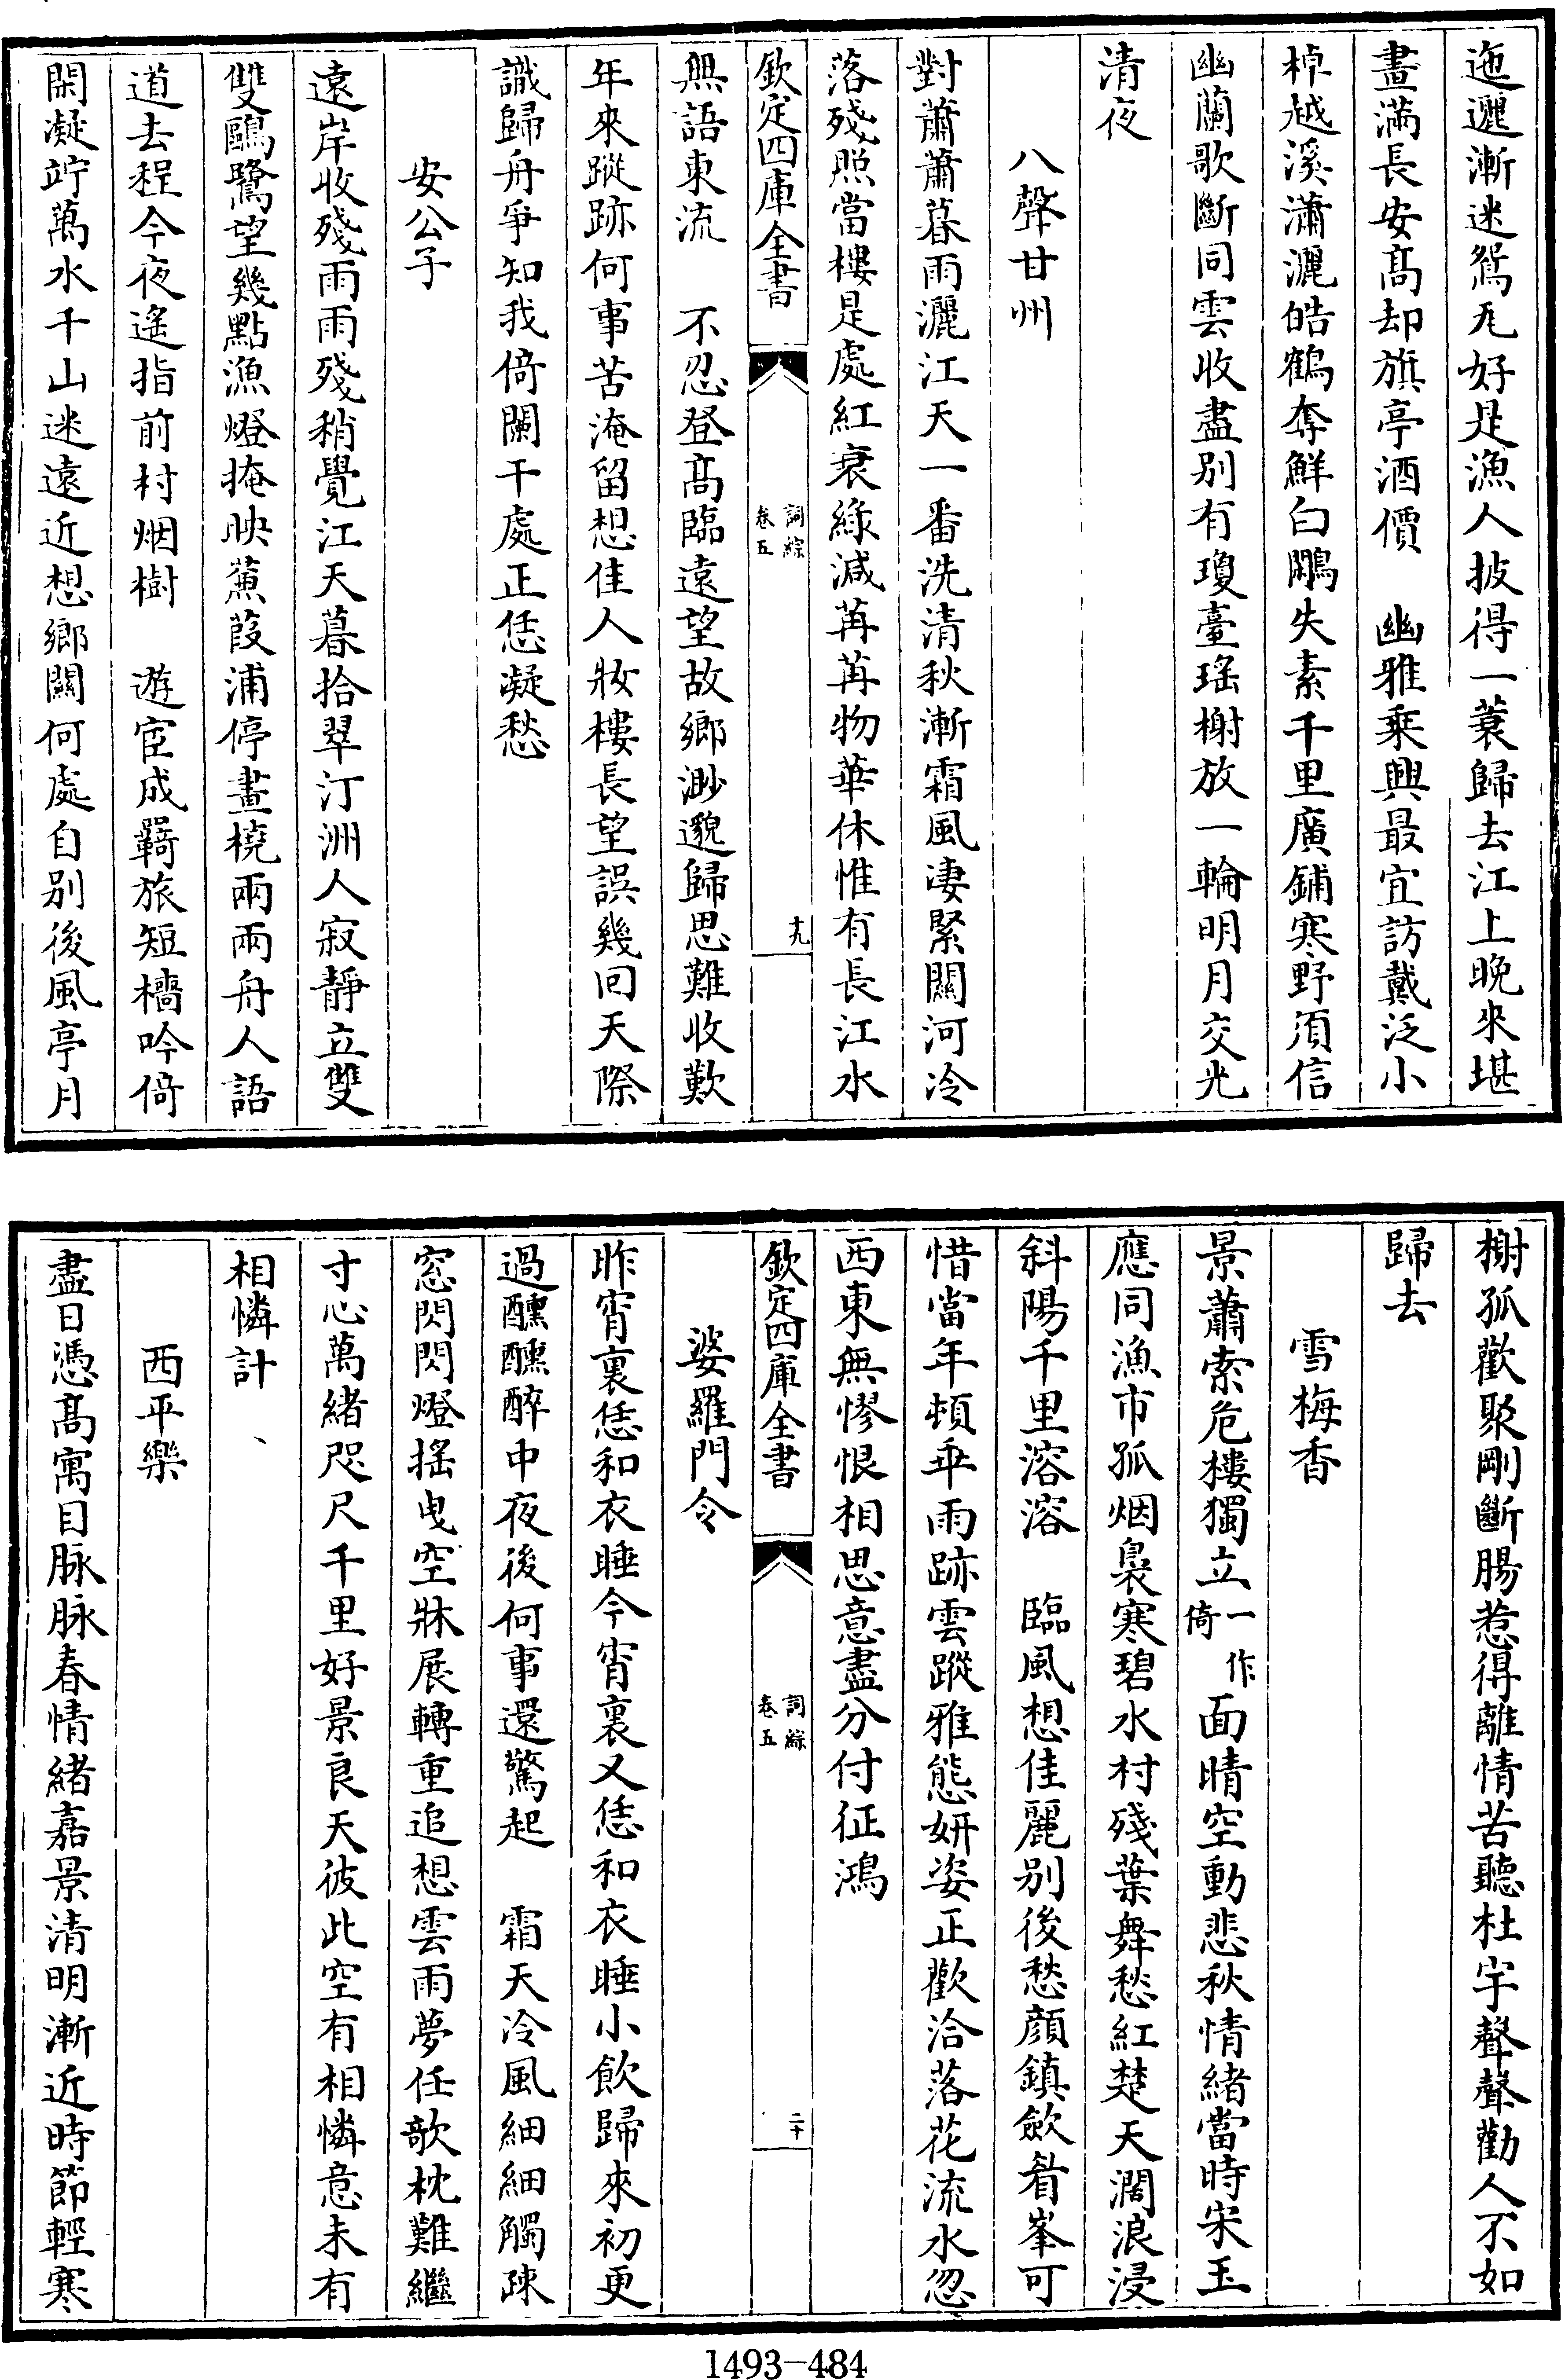 迤邐漸迷鴛瓦好是漁人披得一蓑歸去江上晚來堪
畫滿長安髙却旗亭酒價　幽雅乗興最宜訪戴泛小
棹越溪瀟灑皓鶴奪鮮白鷳失素千里廣鋪寒野須信
幽蘭歌斷同雲收盡别有瓊臺瑤榭放一輪明月交光
清夜
八聲甘州
對蕭蕭暮雨灑江天一番洗清秋漸霜風凄緊闗河冷
落殘照當樓是處紅衰綠減苒苒物華休惟有長江水
欽定四庫全書
詞綜
卷五
十九
無語東流　不忍登髙臨遠望故鄉渺邈歸思難收歎
年來蹤跡何事苦淹留想佳人妝樓長望誤幾回天際
識歸舟爭知我倚闌干處正恁凝愁
安公子
遠岸收殘雨雨殘稍覺江天暮拾翠汀洲人寂靜立雙
雙鷗鷺望幾點漁燈掩映蒹葭浦停畫橈兩兩舟人語
道去程今夜遙指前村烟樹　遊宦成羇旅短檣吟倚
閑凝竚萬水千山迷遠近想鄉關何處自别後風亭月
榭孤歡聚剛斷腸惹得離情苦聽杜宇聲聲勸人不如
歸去
雪梅香
景蕭索危樓獨立一作倚面晴空動悲秋情緒當時宋玉
應同漁市孤烟裊寒碧水村殘葉舞愁紅楚天濶浪浸
斜陽千里溶溶　臨風想佳麗别後愁顔鎮斂眉峯可
惜當年頓乖雨跡雲蹤雅態妍姿正歡洽落花流水忽
西東無憀恨相思意盡分付征鴻
欽定四庫全書
詞綜
卷五
二十
婆羅門令
昨宵裏恁和衣睡今宵裏又恁和衣睡小飲歸來初更
過醺醺醉中夜後何事還驚起　霜天冷風細細觸疎
窓閃閃燈搖曳空牀展轉重追想雲雨夢任欹枕難繼
寸心萬緒咫尺千里好景良天彼此空有相憐意未有
相憐計、
西平樂
盡日憑髙寓目脉脉春情緒嘉景清明漸近時節輕寒
1493-484